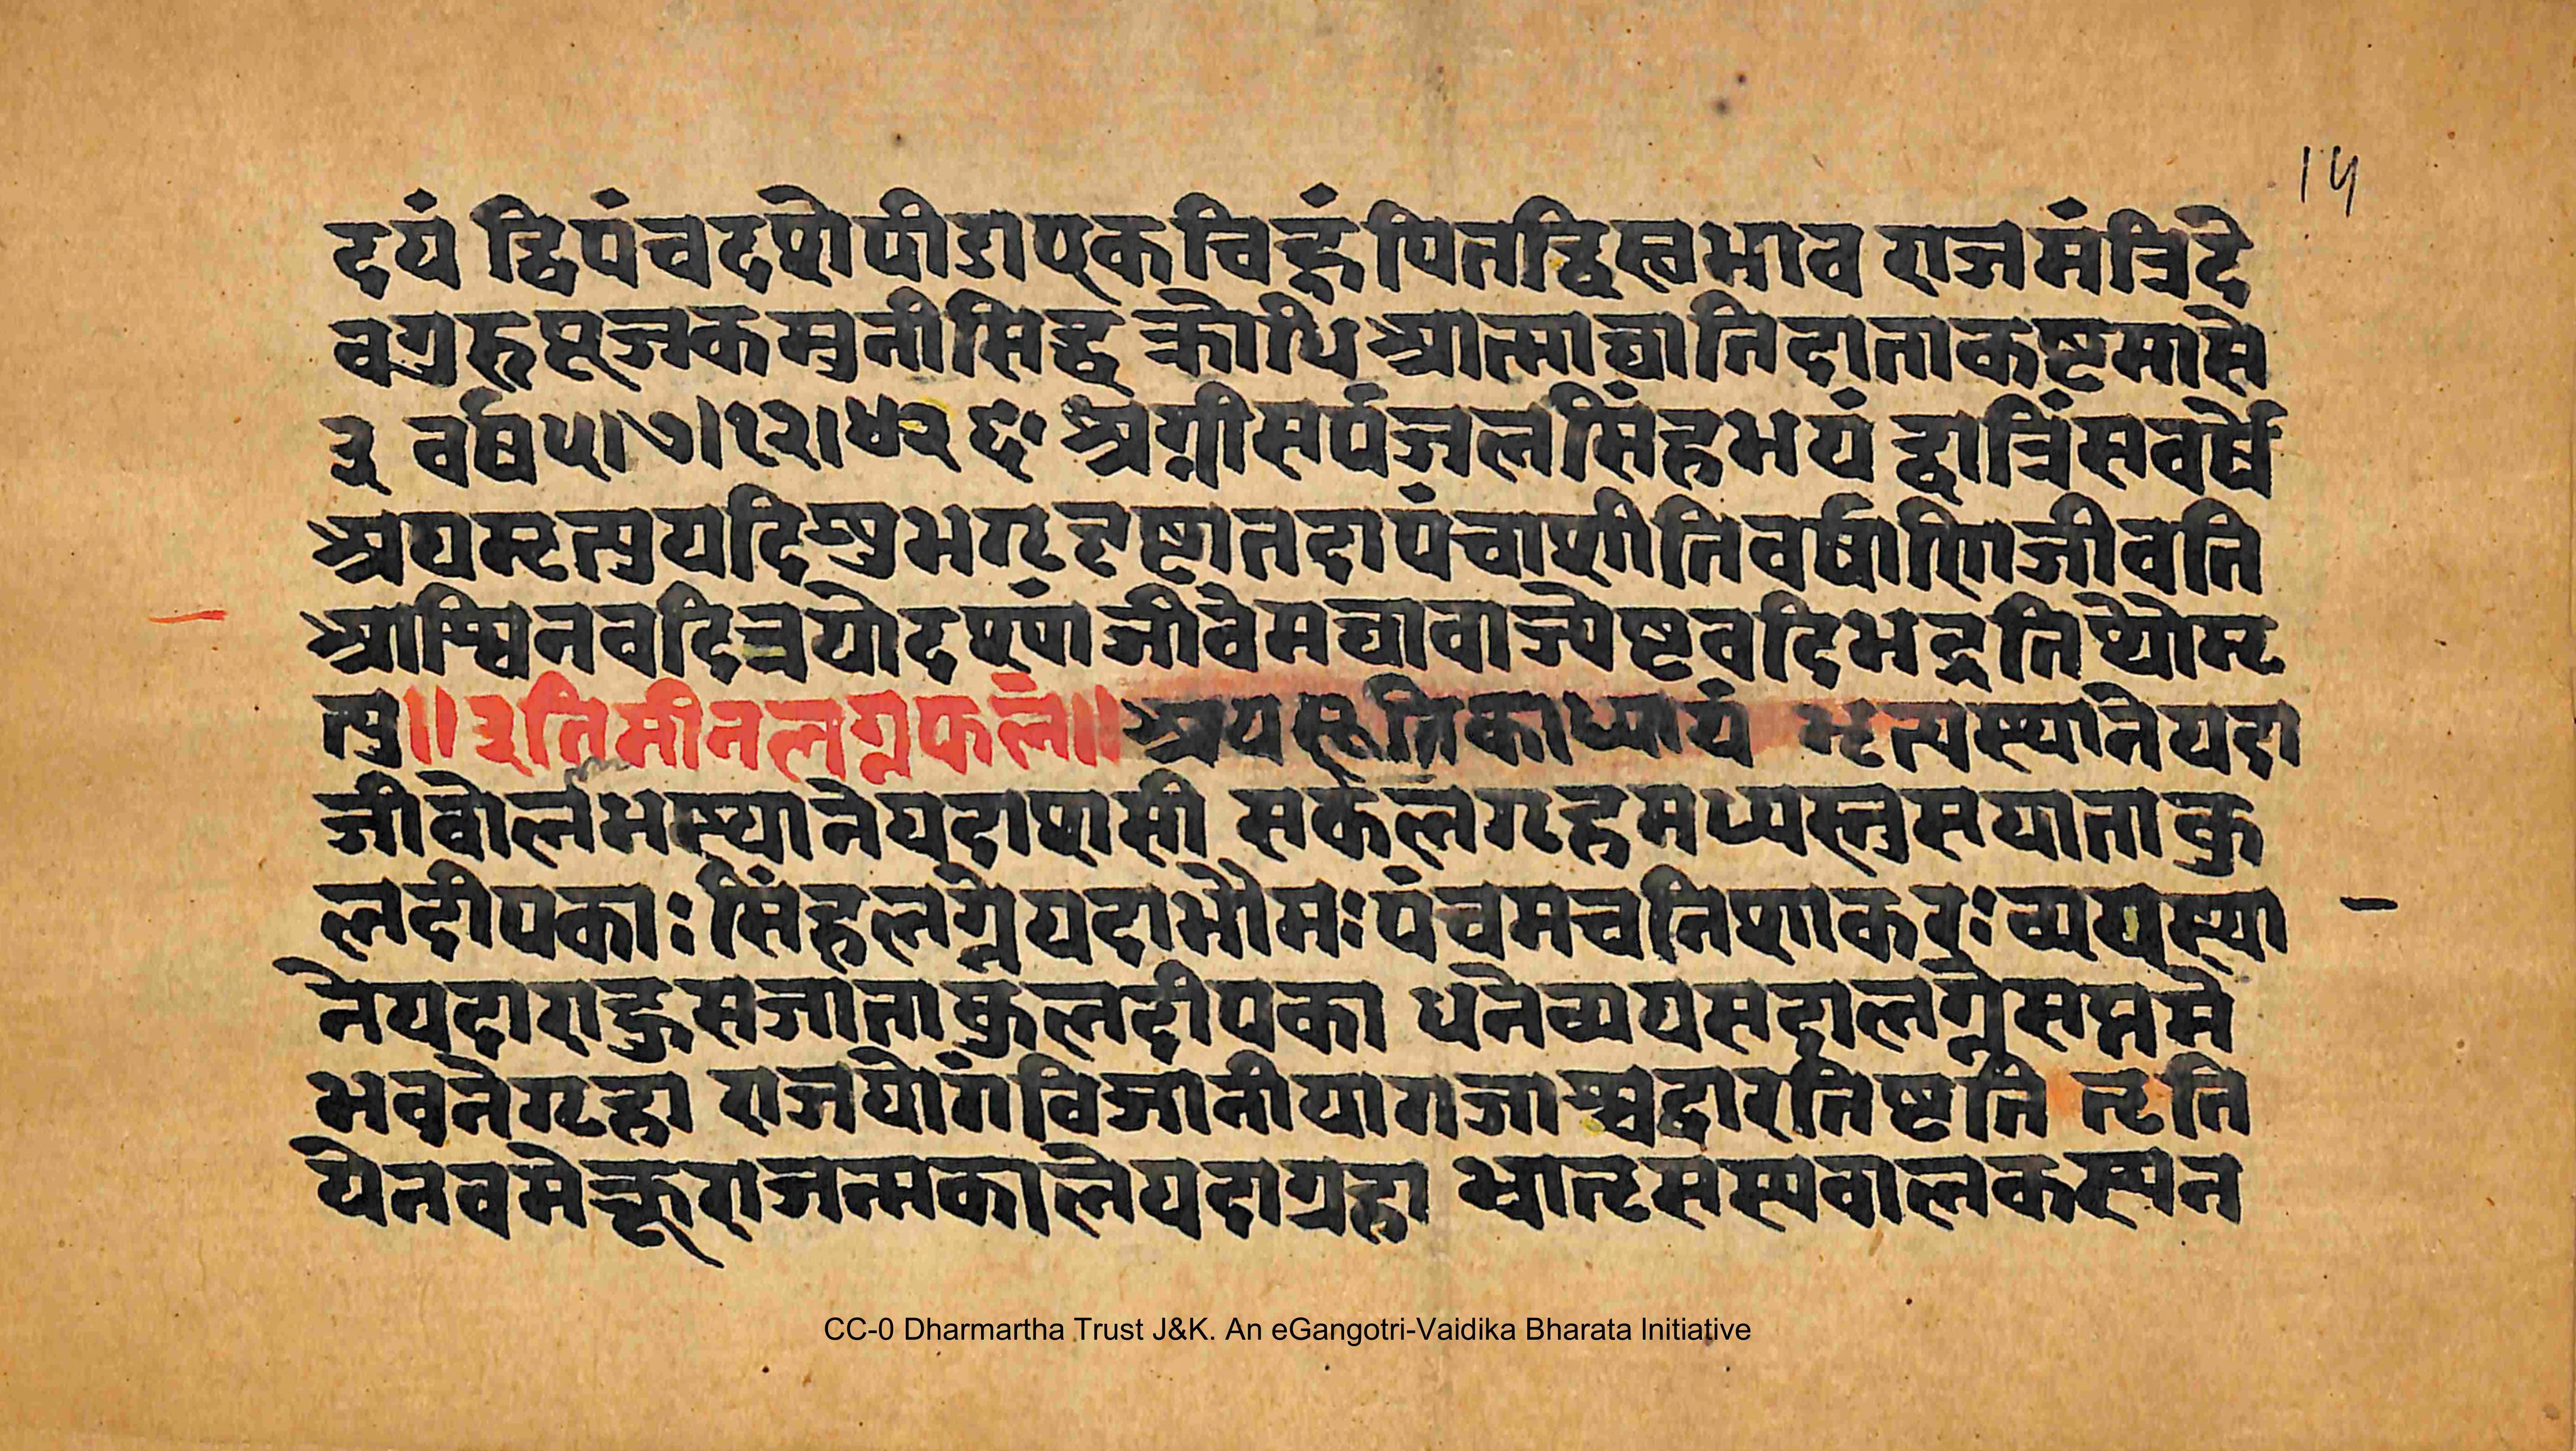 15
दयं द्विपंचदशेपीडाएकचिन्हंपितद्विस्वभाव राजमंत्रिदे
वग्रहपूजकमुनीसिद्ध क्रोधि आत्माघातिदाताकष्टमासे
३ वर्ष५।७।१२।४२ ६ः अग्नीसर्पजलसिंहभयं द्वात्रिंसवर्षे
अपमृत्युयदिशुभगृहदृष्टातदापंचाशीतिवर्षाणिजीवति
आश्विनवदित्रयोदश्यां जीवेमघावाज्येष्टवदिभद्रतिथ्योमृ
त्यु॥इतिमीनलग्नफलं॥अथसूतिकाध्यायं भृत्यस्थानेयदा
जीवोलभस्थानेयदाशसी सकलगृहमध्यस्तुसयाताकु
लदीपकाः सिंहलग्नेयदाभौमः पंचमचनिशाकरः व्ययस्था
नेयदाराहुसजाताकुलदीपका धनेव्ययसदालग्नेसप्तमे
भवनेगृहा राजयोगंविजानीयाराजाश्वद्वारतिष्टति तृति
येनवमेक्रूराजन्मकालेयदाग्रहा भ्रातृसस्यवालकस्यन
CC-0 Dharmartha Trust J&K. An eGangotri-Vaidika Bharata Initiative